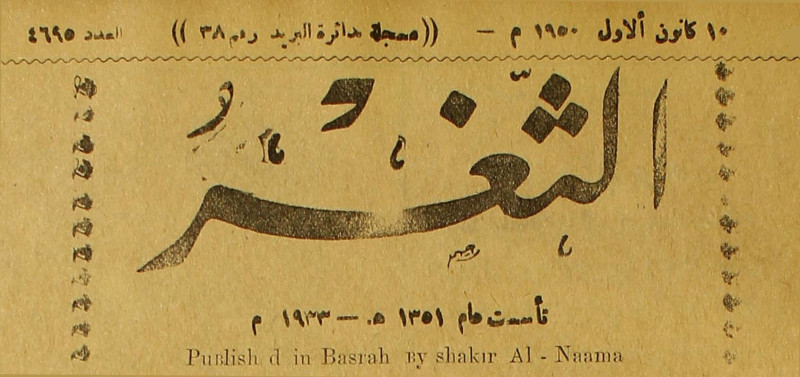 ١٠ كانون ألاول ١٩٥٠ م — ((مسجلة بدائرة البريد رقم ٣٨)) العدد ٤٦٩٥
الثَّغْرُ
تأسست عام ١٣٥١ ه — ١٩٣٣ م
Publish d in Basrah By shakir Al - Naama